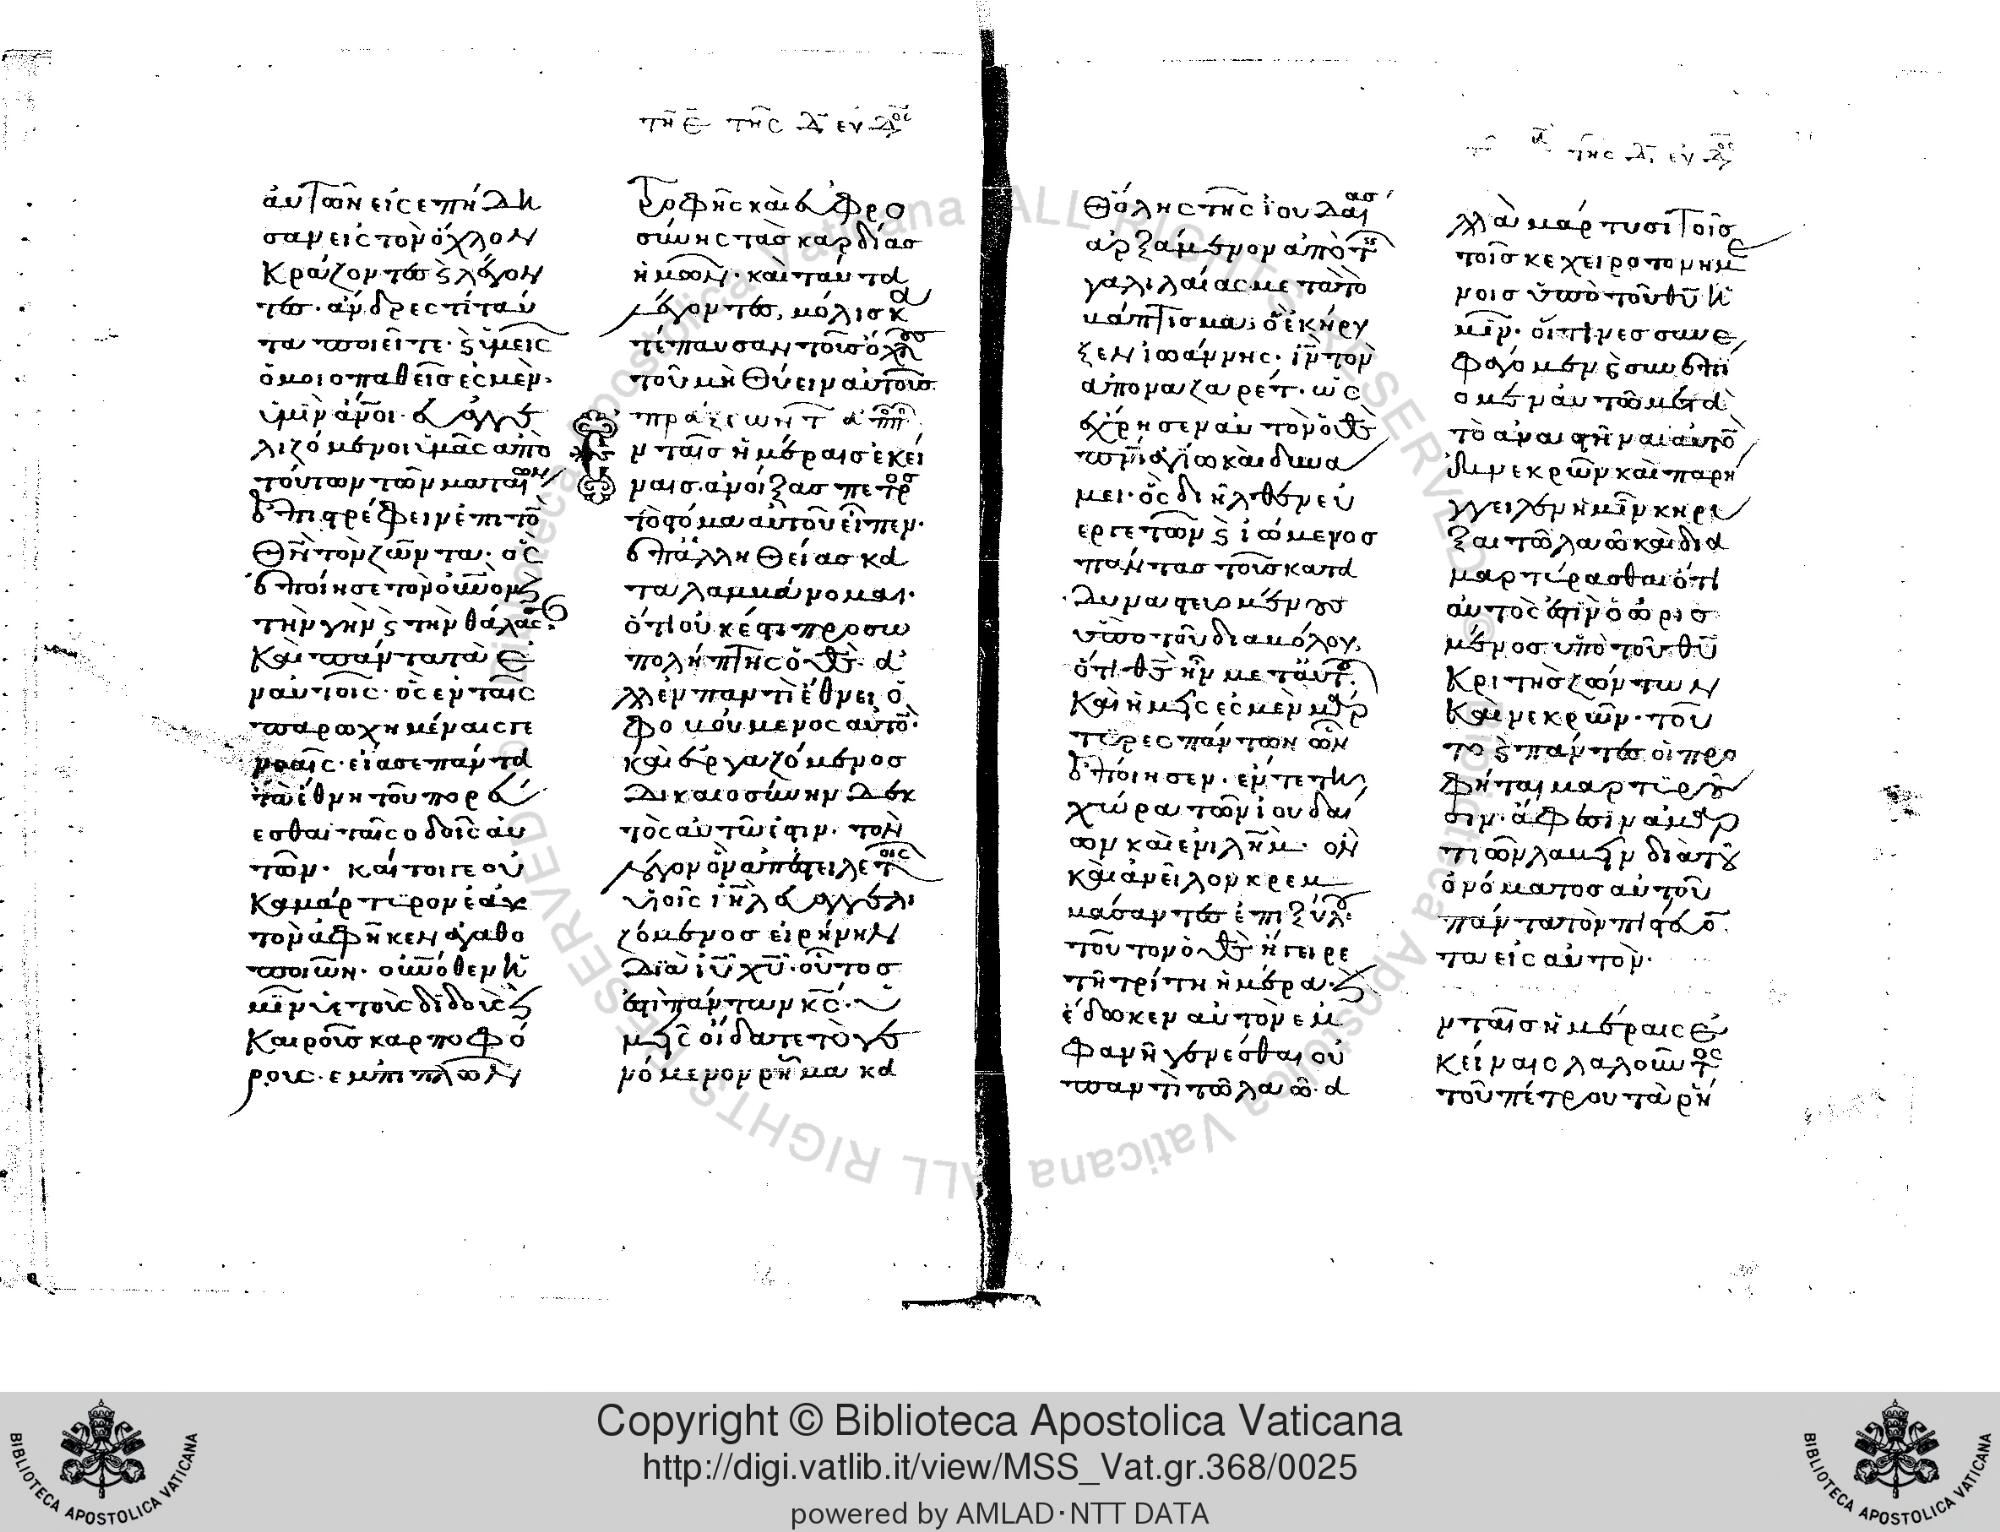 τῆ ε τῆς δ ἑβδ
αὐτῶν εἰσεπήδη
σαν εἰς τὸν ὄχλον
κράζοντες ϗ λέγον
τες· ἄνδρες τί ταῦ
τα ποιεῖτε· ϗ ἡμεῖς
ὁμοιοπαθεῖς ἐσμὲν·
ὑμῖν ἄνοι· εὐαγγε
λιζόμενοι ὑμᾶς ἀπὸ
τούτων τῶν ματαίων
ἐπιστρέφειν ἐπι τὸν
θν τὸν ζῶντα· ὃς
ἐποίησε τὸν οὐνον ϗ
τὴν γῆν ϗ τὴν θάλασ·
καὶ πάντα τὰ ἐ
ν αὐτοῖς· ὃς ἐν ταῖς
παρωχημέναις γε
νεαῖς· εἴασε πάντα
τὰ ἔθνη τοῦ πορεύ
εσθαι ταῖς ὁδοῖς αὐ
τῶν· καίτοιγε οὐ
κ ἀμάρτυρον ἑαυ
τὸν ἀφῆκεν ἀγαθο
ποιῶν· οὐνόθεν ἡ
μῖν ὑετοὺς διδοὺς ϗ
καιροὺς καρποφό
ρους· ἐμπιπλῶν
τροφῆς καὶ εὐφρο
σύνης τὰς καρδίας
ἡμῶν· καὶ ταῦτα
λέγοντες, μόλις κα
τέπαυσαν τοὺς ὄχλους
τοῦ μὴ θύειν αὐτοῖς.
πράξεων
Εν ταῖς ἡμέραις ἐκεί
ναις. ἀνοίξας πετρος
τὸ στόμα αὐτοῦ εἶπεν·
ἐπ' ἀληθείας κα
ταλαμβάνομαι·
ὅτι οὐκ ἔστι προσω
πολήπτης ὁ θς· ἀ
λλ' ἐν παντὶ ἔθνει ὁ
φοβούμενος αὐτὸν·
καὶ ἐργαζόμενος
δικαιοσύνην δεκ
τὸς αὐτῶ ἐστιν· τὸν
λόγον ὃν ἀπέστειλε τοῖς
υἱοῖς ιηλ εὐαγγελι
ζόμενος εἰρήνην
διὰ ιυ χυ· οὗτος
ἐστὶ πάντων κς· ὑ
μεῖς οἴδατε τὸ γε
νόμενον ῥῆμα κα
τῆς δ ἑβδ
θ' ὅλης τῆς ἰουδαίας
ἀρξάμενον ἀπὸ τῆς
γαλιλαίας μετὰ τὸ
βάπτισμα· ὃ ἐκήρυ
ξεν ἰωάννης· ιν τὸν
ἀπο ναζαρέτ· ὡς
ἔχρησεν αὐτὸν ὁ θς
πνι ἁγίω καὶ δυνά
μει· ὃς διῆλθεν εὐ
εργετῶν ϗ ἰώμενος
πάντας τοὺς κατα
δυναστευομένους
ὑπὸ τοῦ διαβόλου,
ὅτι ὁ θς ἦν μετ' αὐτοῦ.
καὶ ἡμεῖς ἐσμὲν μάρ
τυρες πάντων ὧν
ἐποίησεν· ἔν τε τῆ
χώρα τῶν ἰουδαί
ων καὶ ἐν ιλημ· ὃν
καὶ ἀνεῖλον κρεμ
μάσαντες ἐπὶ ξύλου·
τοῦτον ὁ θς ἤγειρε
τῆ τρίτη ἡμέρα· ϗ
ἔδωκεν αὐτὸν ἐμ
φανῆ γενέσθαι οὐ
παντὶ τῶ λαῶ· ἀ
λλὰ μάρτυσι τοῖς
τοῖς κεχειροτονημέ
νοις ὑπὸ τοῦ θυ ἡ
μῖν· οἵτινες συνε
φάγομεν ϗ συνεπί
ομεν αὐτῶ μετὰ
τὸ ἀναστῆναι αὐτὸν
ἐκ νεκρῶν καὶ παρή
γγειλεν ἡμῖν κηρύ
ξαι τῶ λαῶ καὶ δια
μαρτύρασθαι ὅτι
αὐτὸς ἐστὶν ὁ ὡρισ
μένος ὑπὸ τοῦ θυ
κριτὴς ζώντων
καὶ νεκρῶν· τού
τω ϗ πάντες οἱ προ
φῆται μαρτυροῦ
σιν· ἄφεσιν ἁμαρ
τιῶν λαβεῖν διὰ τοῦ
ὀνόματος αὐτοῦ
πάντα τὸν πιστεύον
τα εἰς αὐτὸν·
ν ταῖς ἡμέραις ἐ
κείναις λαλοῦντος
τοῦ πέτρου τὰ ῥή
Copyright © Biblioteca Apostolica Vaticana
http://digi.vatlib.it/view/MSS_Vat.gr.368/0025
powered by AMLAD·NTT DATA
BIBLIOTECA APOSTOLICA VATICANA
BIBLIOTECA APOSTOLICA VATICANA